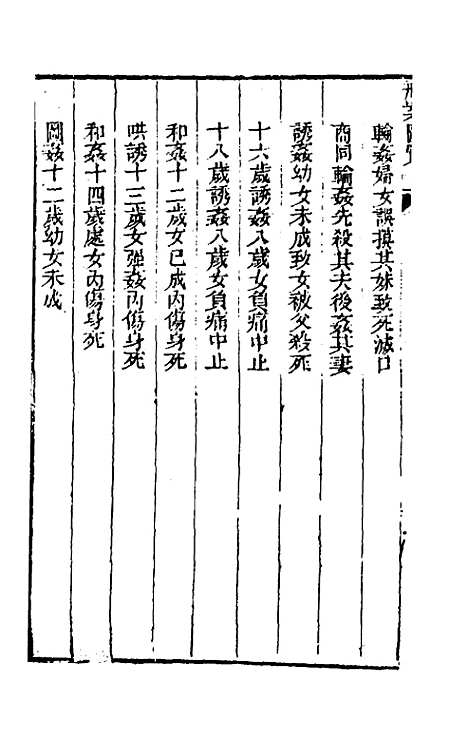 輪姦婦女誤摸其妹致死滅口
商同輪姦先殺其夫後姦其妻
誘姦幼女未成致女被父殺死
十六歲誘姦八歲女負痛中止
十八歲誘姦八歲女負痛中止
和姦十二歲女已成內傷身死
哄誘十三歲女強姦內傷身死
和姦十四歲處女內傷身死
姦十二歲幼女未成